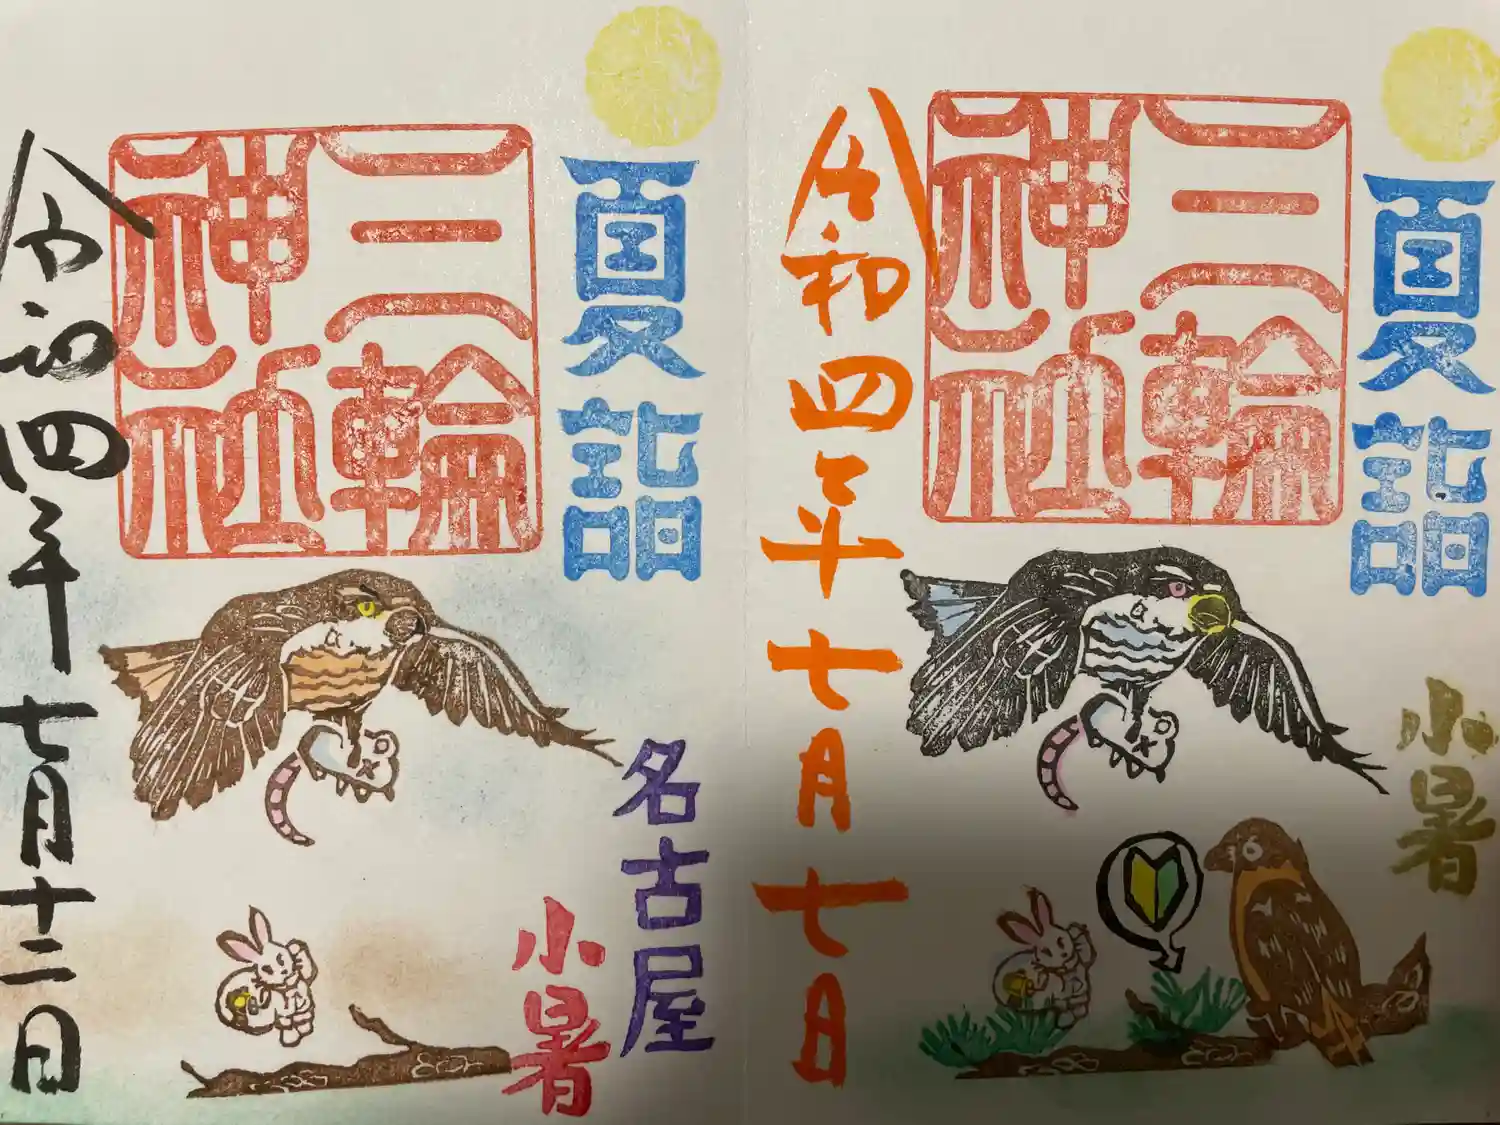 夏詣
小暑
三輪
神社
令和四年七月七日
夏詣
名古屋
小暑
三輪
神社
令和四年七月十二日